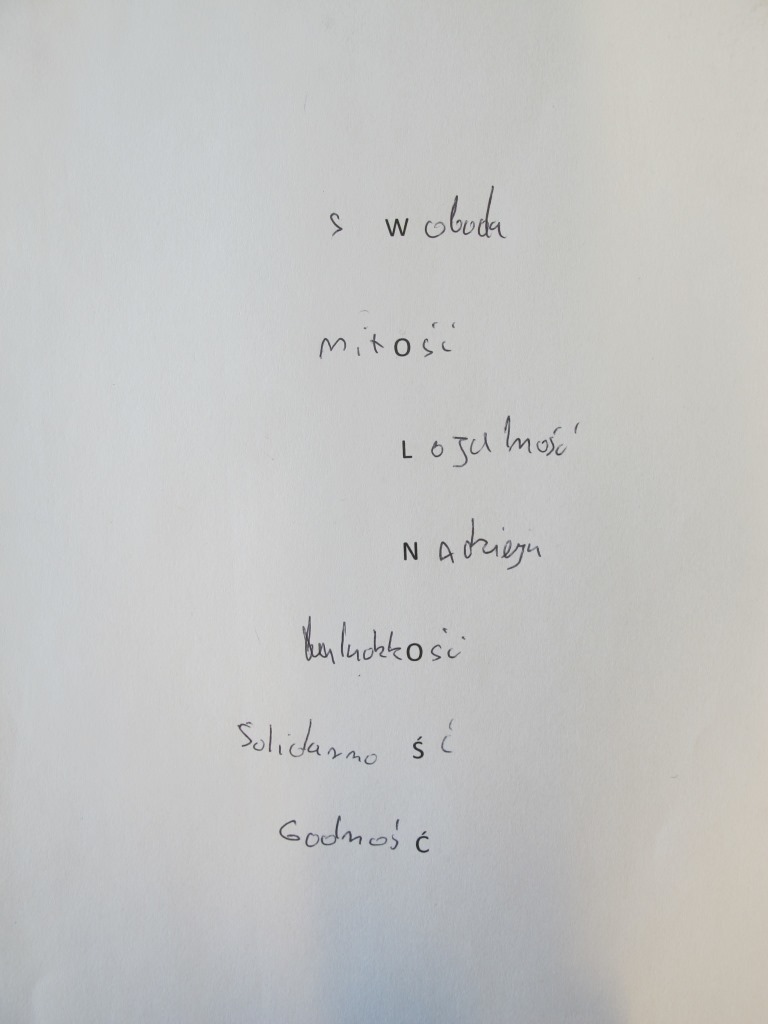 S W oboda
Miłość
L ojalność
N Adzieja
ludzkość
Solidarno Ść
Godnoś Ć